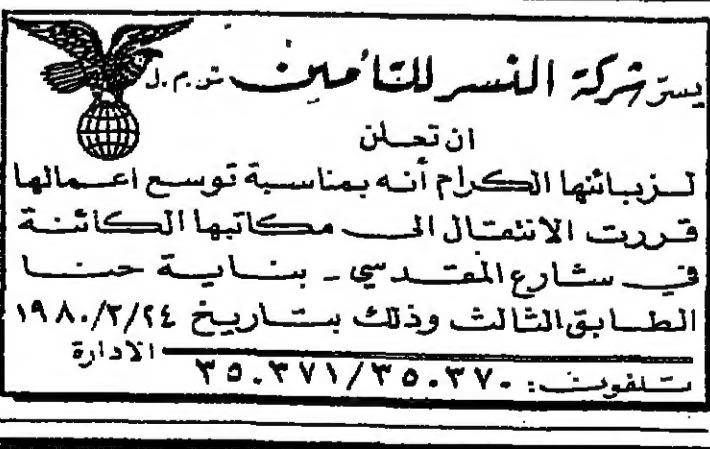 يسر شركة النسر للتأمين ش.م.ل
ان تعلن
لزبائنها الكرام أنه بمناسبة توسع اعمالها
قررت الانتقال الى مكاتبها الكائنة
في شارع المقدسي - بناية حنا
الطابق الثالث وذلك بتاريخ ١٩٨٠/٢/٢٤
الادارة
تلفون: ٣٥٠٣٧١/٣٥٠٣٧٠